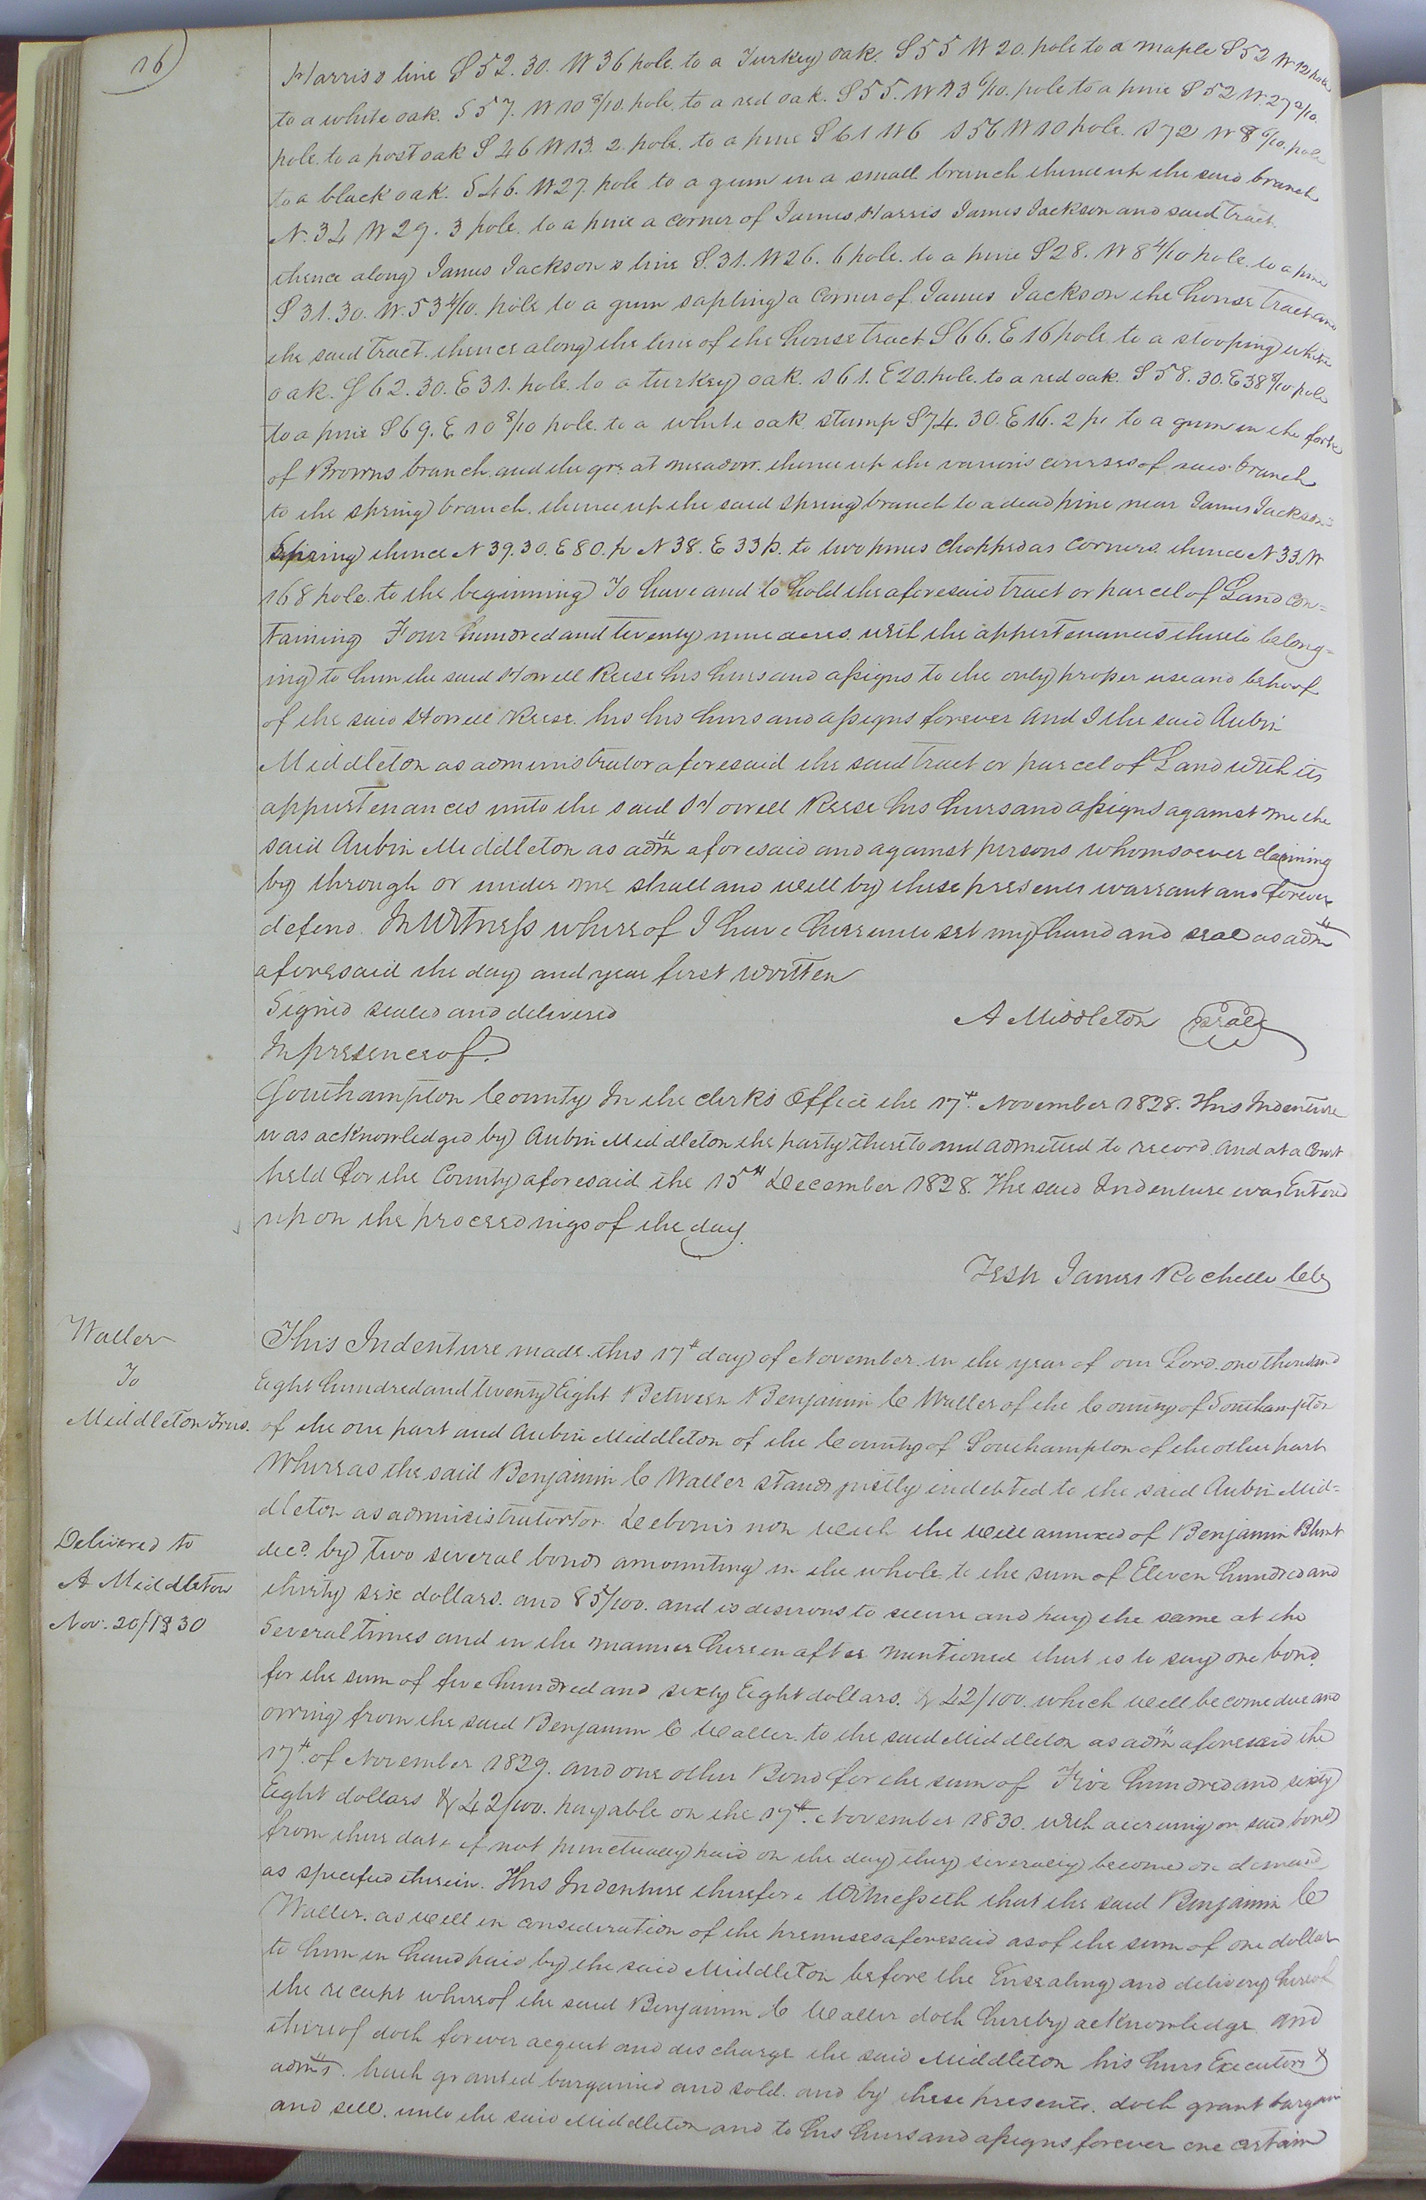 16
Harris's line S 52. 30. W 36 pole. to a Turkey oak. S 55 W 20. pole to a maple S 52 W 12 poles
to a white oak. S 57. W 10 8/10. pole, to a red oak. S 55. W 13 6/10. pole to a pine S 52 W 27 2/10.
pole to a post oak S 46 W 13. 2. pole. to a pine S 61 W 6 S 56 W 10 pole. S 72 W 8 6/10. pole
to a black oak. S 46. W 27. pole to a gum in a small branch thence up the said branch
N. 34 W 29. 3 pole. to a pine a corner of James Harris James Jackson and said tract.
thence along James Jackson's line S. 31. W 26. 6 pole. to a pine S 28. W 8 4/10 pole to a pine
S 31. 30. W. 53 4/10. pole to a gum sapling a Corner of James Jackson the house tract and
the said tract. thence along the line of the house tract S 66. E 16 pole to a stooping white
oak. S 62. 30. E 31. pole to a turkey oak. S 61. E 20. pole. to a red oak. S 58. 30. E 38 8/10 pole
to a pine S 69. E 10 8/10 pole to a white oak stump S 74. 30. E 16. 2 po to a gum in the forke
of Browns branch and the great meadow. thence up the various courses of said branch
to the spring branch. thence up the said spring branch to a dead pine near James Jackson's
Spring thence N 39. 30. E 80. p N 38. E 33 p. to two pines chopped as corners. thence N 33. W
168 pole. to the beginning To have and to hold the aforesaid tract or parcel of Land con=
taining Four hundred and twenty nine acres with the appertenances thereto belong=
ing to him the said Howell Reese his heirs and assigns to the only proper use and behoof
of the said Howell Reese. his his heirs and assigns forever And I the said Aubin
Middleton as administrator aforesaid the said tract or parcel of Land with its
appurtenances unto the said Howell Reese his heirs and assigns against me the
said Aubin Middleton as admr aforesaid and against persons whomsoever claiming
by through or under me shall and will by these presents warrant and forever
defend. In Witness whereof I have hereunto set my hand and seal as admr
aforesaid the day and year first written
Signed sealed and delivered A Middleton Seal
In presence of.
Southampton County In the clerks Office the 17th. November 1828. This Indenture
was acknowledged by Aubin Middleton the party thereto and admitted to record. And at a Court
held for the County aforesaid the 15th December 1828. The said Indenture was Entered
upon the proceedings of the day.
Test James Rochelle Clk
Waller
To
Middleton Trus.
Delivered to
A Middleton
Nov. 20/1830
This Indenture made this 17th day of November in the year of our Lord one thousand
Eight hundred and twenty Eight Between Benjamin C Waller of the County of Southampton
of the one part and Aubin Middleton of the County of Southampton of the other part
Whereas the said Benjamin C Waller stands justly indebted to the said Aubin Mid=
dleton as administrator Debonis non with the will annexed of Benjamin Blunt
decd. by two several bonds amounting in the whole to the sum of Eleven hundred and
thirty six dollars. and 85/100. and is desirous to secure and pay the same at the
Several times and in the manner herein after mentioned that is to say one bond
for the sum of five hundred and sixty Eight dollars. & 42/100. which will become due and
owing from the said Benjamin C Waller to the said Middleton as admr aforesaid the
17th. of November 1829. and one other Bond for the sum of Five hundred and sixty
Eight dollars & 42/100. payable on the 17th. November 1830. with accruing on said bonds
from their date if not punctually paid on the day they severally become on demand
as specified therein. This Indenture therefore Witnesseth that the said Benjamin C
Waller. as well in consideration of the premises aforesaid as of the sum of one dollar
to him in hand paid by the said Middleton before the Ensealing and delivery hereof
the receipt whereof the said Benjamin C Waller doth hereby acknowledge and
thereof doth forever acquit and discharge the said Middleton his heirs Executors &
admrs. hath granted bargained and sold. and by these presents. doth grant bargain
and sell. unto the said Middleton and to his heirs and assigns forever one certain